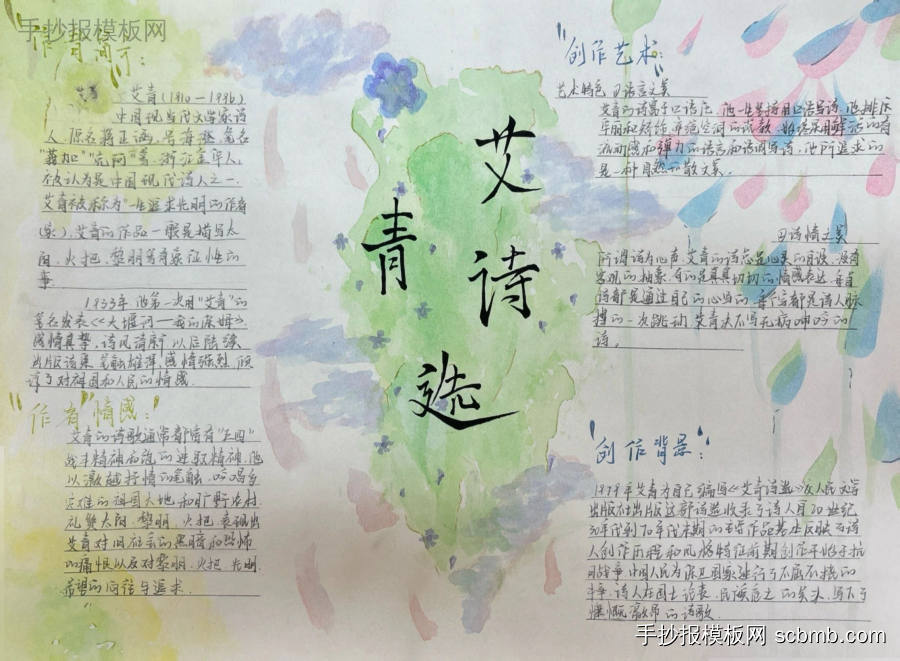 手抄报模板网
作者简介:
艾青(1910—1996)
中国现当代文学家诗
人,原名蒋正涵,号海澄,笔名
"莪加""克阿"等,浙江金华人,
不被认为是中国现代诗人之一.
艾青被称为"一生追求光明的作者
(家),艾青的作品一般是描写太
阳,火把,黎明等有象征性的
事
1933年他第一次用"艾青"的
笔名发表《大堰河—我的保姆》,
感情真挚,诗风清新,以后陆续
出版诗集,笔触雄浑,感情强烈,倾
诉了对祖国和人民的情感.
作者"情感:"
艾青的诗歌通常都带有"五四"
战斗精神
的进取精神,他
以激越抒情的笔触,吟唱多
灾难的祖国大地和旷野农村
礼赞太阳,黎明,火把,表现出
艾青对旧社会的黑暗和恐怖
的痛恨以及对黎明,火把,光明
希望的向往与追求.
艾青
诗选
"创作艺术:
艺术特色 ①语言之美
艾青的诗富于口语化,他一生坚持用口语写诗,他排斥
是一种自然的散文美.
②诗情之美
所谓诗为心声,艾青的诗总是心灵的
客观的抽象,有的是真真切切的情感表达,每首
诗都是通过自己的心写的,
都是诗人脉
搏的一次跳动,艾青决不写无病呻吟的
诗.
"创作背景:"
1979年艾青为自己编写《艾青诗选》,人民文学
出版社出版这部诗选收录了诗人自20世纪
30年代到70年代末期的
作品基本反映了诗
人创作历程和风格特征前期创作开始于抗
日战争,中国人民为保卫国家进行了不屈不挠的
斗争,诗人在国土沦丧,民族危亡的关头,写下了
慷慨激昂的诗歌
手抄报模板网 scbmb.com